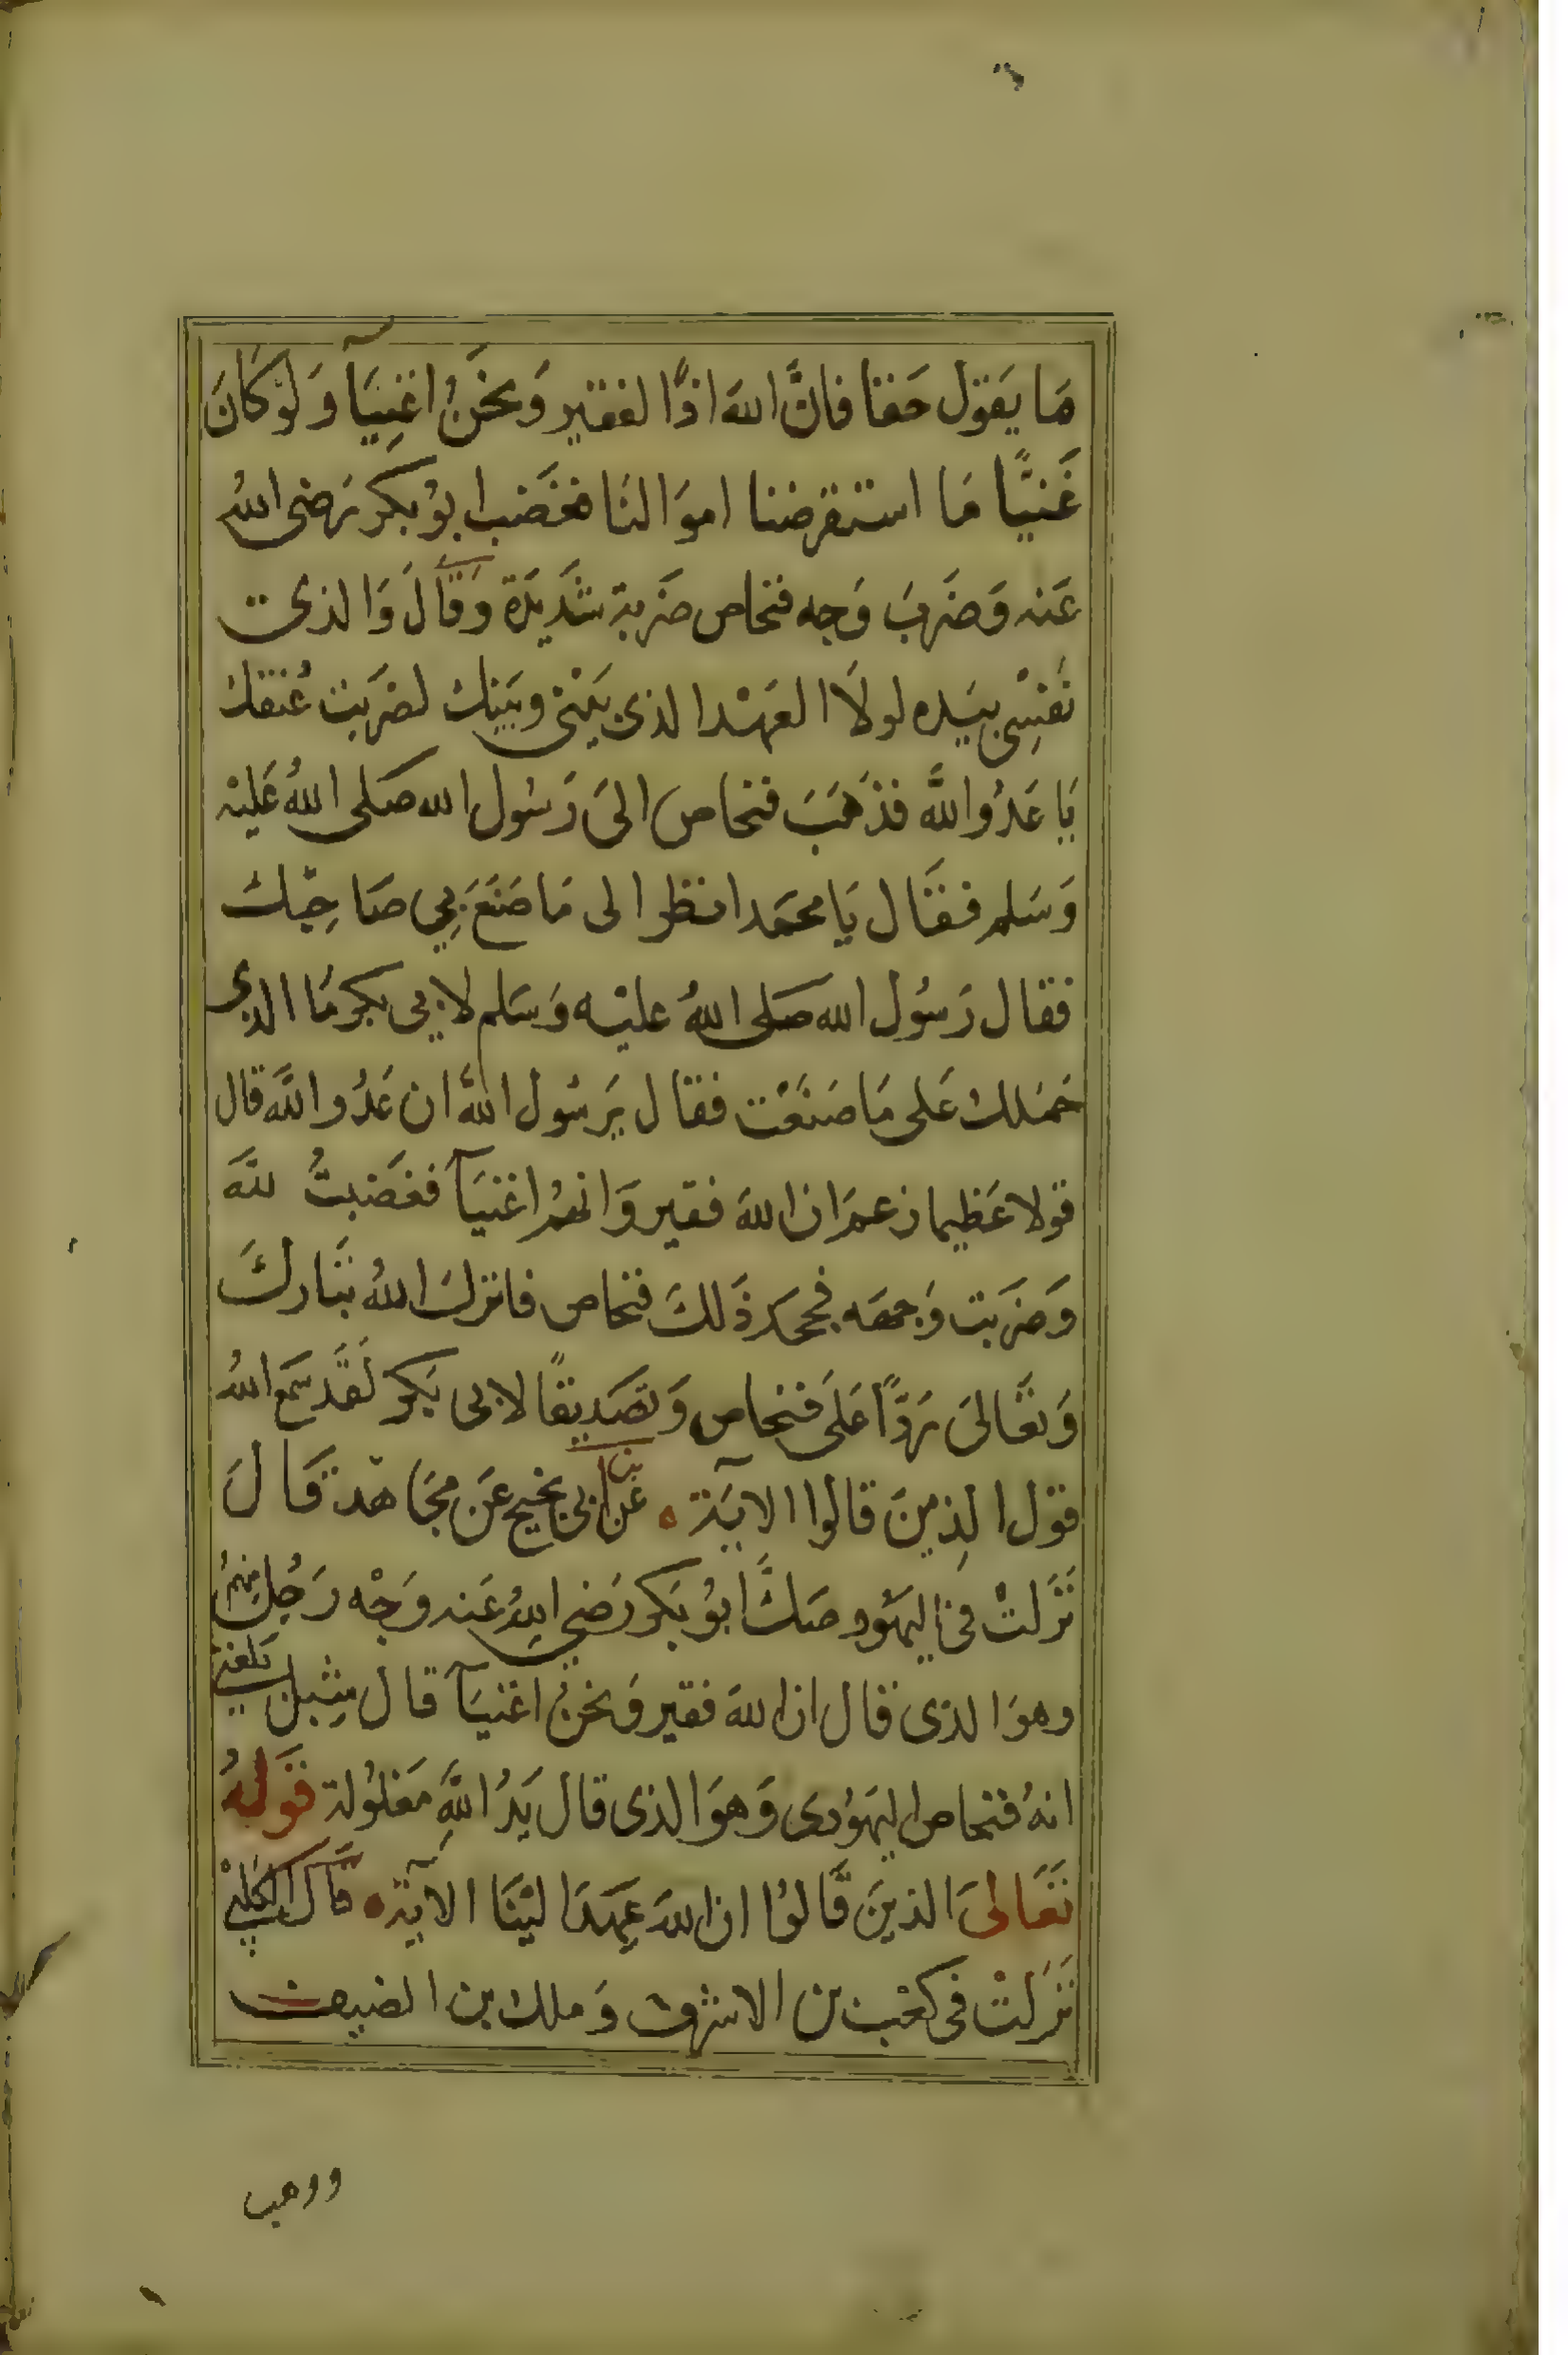 مَا يَقوْل حَقا فانَّ اللهَ اذًا لفقير وَنَحْنُ اغنِيَآ وَلَوْ كَانَ
غَنيًّا مَا استقرضنا اموَالنا فغَضب ابوُ بكر رَضى اللهُ
عَنه وَضرَبَ وَجه فنحاص ضَربة شَديدَة وَقالَ وَالذى
نَفسِى بيَده لولَا العَهْد الذى بَيْنى وبَينك لضرَبت عُنقك
يَا عَدُو اللَّه فذَهَبَ فنحاص الىَ رَسُول الله صَلى اللهُ عَليْه
وَسَلم فقَال يَا محمَد انظر الى مَا صَنَعَ بِي صَاحِبك
فقال رَسُول الله صَلى اللهُ عليْه وَسَلم لابي بكر مَا الذى
حَمَلك عَلى مَا صَنَعْت فقال يَرسُول اللهَ ان عَدُو اللَّه قال
قولا عَظيما زعمَ ان اللهَ فقير وَانهُم اغنيَآ فغَضبتُ للهَ
وَضرَبت وَجهَه فجحَدَ ذَلكَ فنحاص فانزلَ اللهُ تبَارك
وَتعَالىَ رَدًّا عَلىَ فنحاص وَتصَديقًا لابى بَكر لَقَد سَمع اللهُ
قول الذِينَ قالوا الايَة ه عَن ابن ابى نجيح عَن مجَاهد قَالَ
نَزَلتْ فى اليهَود صَكَّ ابوُ بَكر رَضيَ اللهُ عَنه وَجْه رَجُل منهُم
وهوَ الذى قال ان اللهَ فقير وَنحنُ اغنيَآ قال شِبل بَلغنى
انهُ فنحاص اليهَوُدى وَهوَ الذى قال يَدُ اللَّهِ مَغلوُلة قَولهُ
تَعَالىَ الذينَ قَالوُا ان اللهَ عَهدَ اليْنَا الآية ه قَال الكلبيْ
نَزَلتْ فى كعْب بن الاشرف وَملك بن الضيف
ووهب